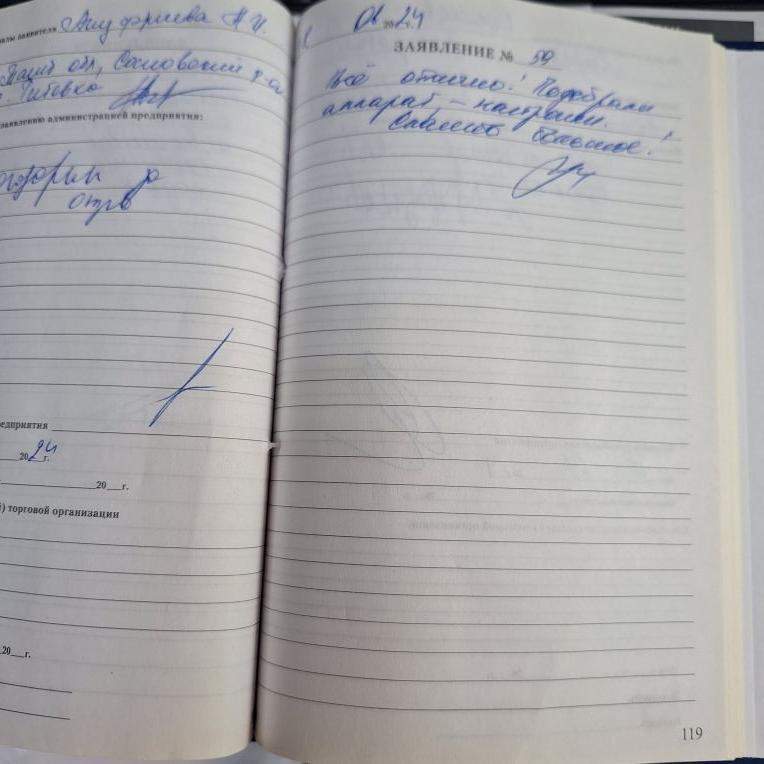 заявителя Ануфриева Н И.
обл, Сосновский р-он
Титовка
заявлению администрацией предприятия:
за
отзыв
редприятия
20 24 г.
20 г.
) торговой организации
20 г.
01 20 24 г.
ЗАЯВЛЕНИЕ № 59
Всё отлично! Подобрали
аппарат, – настроили.
Спасибо большое!
119